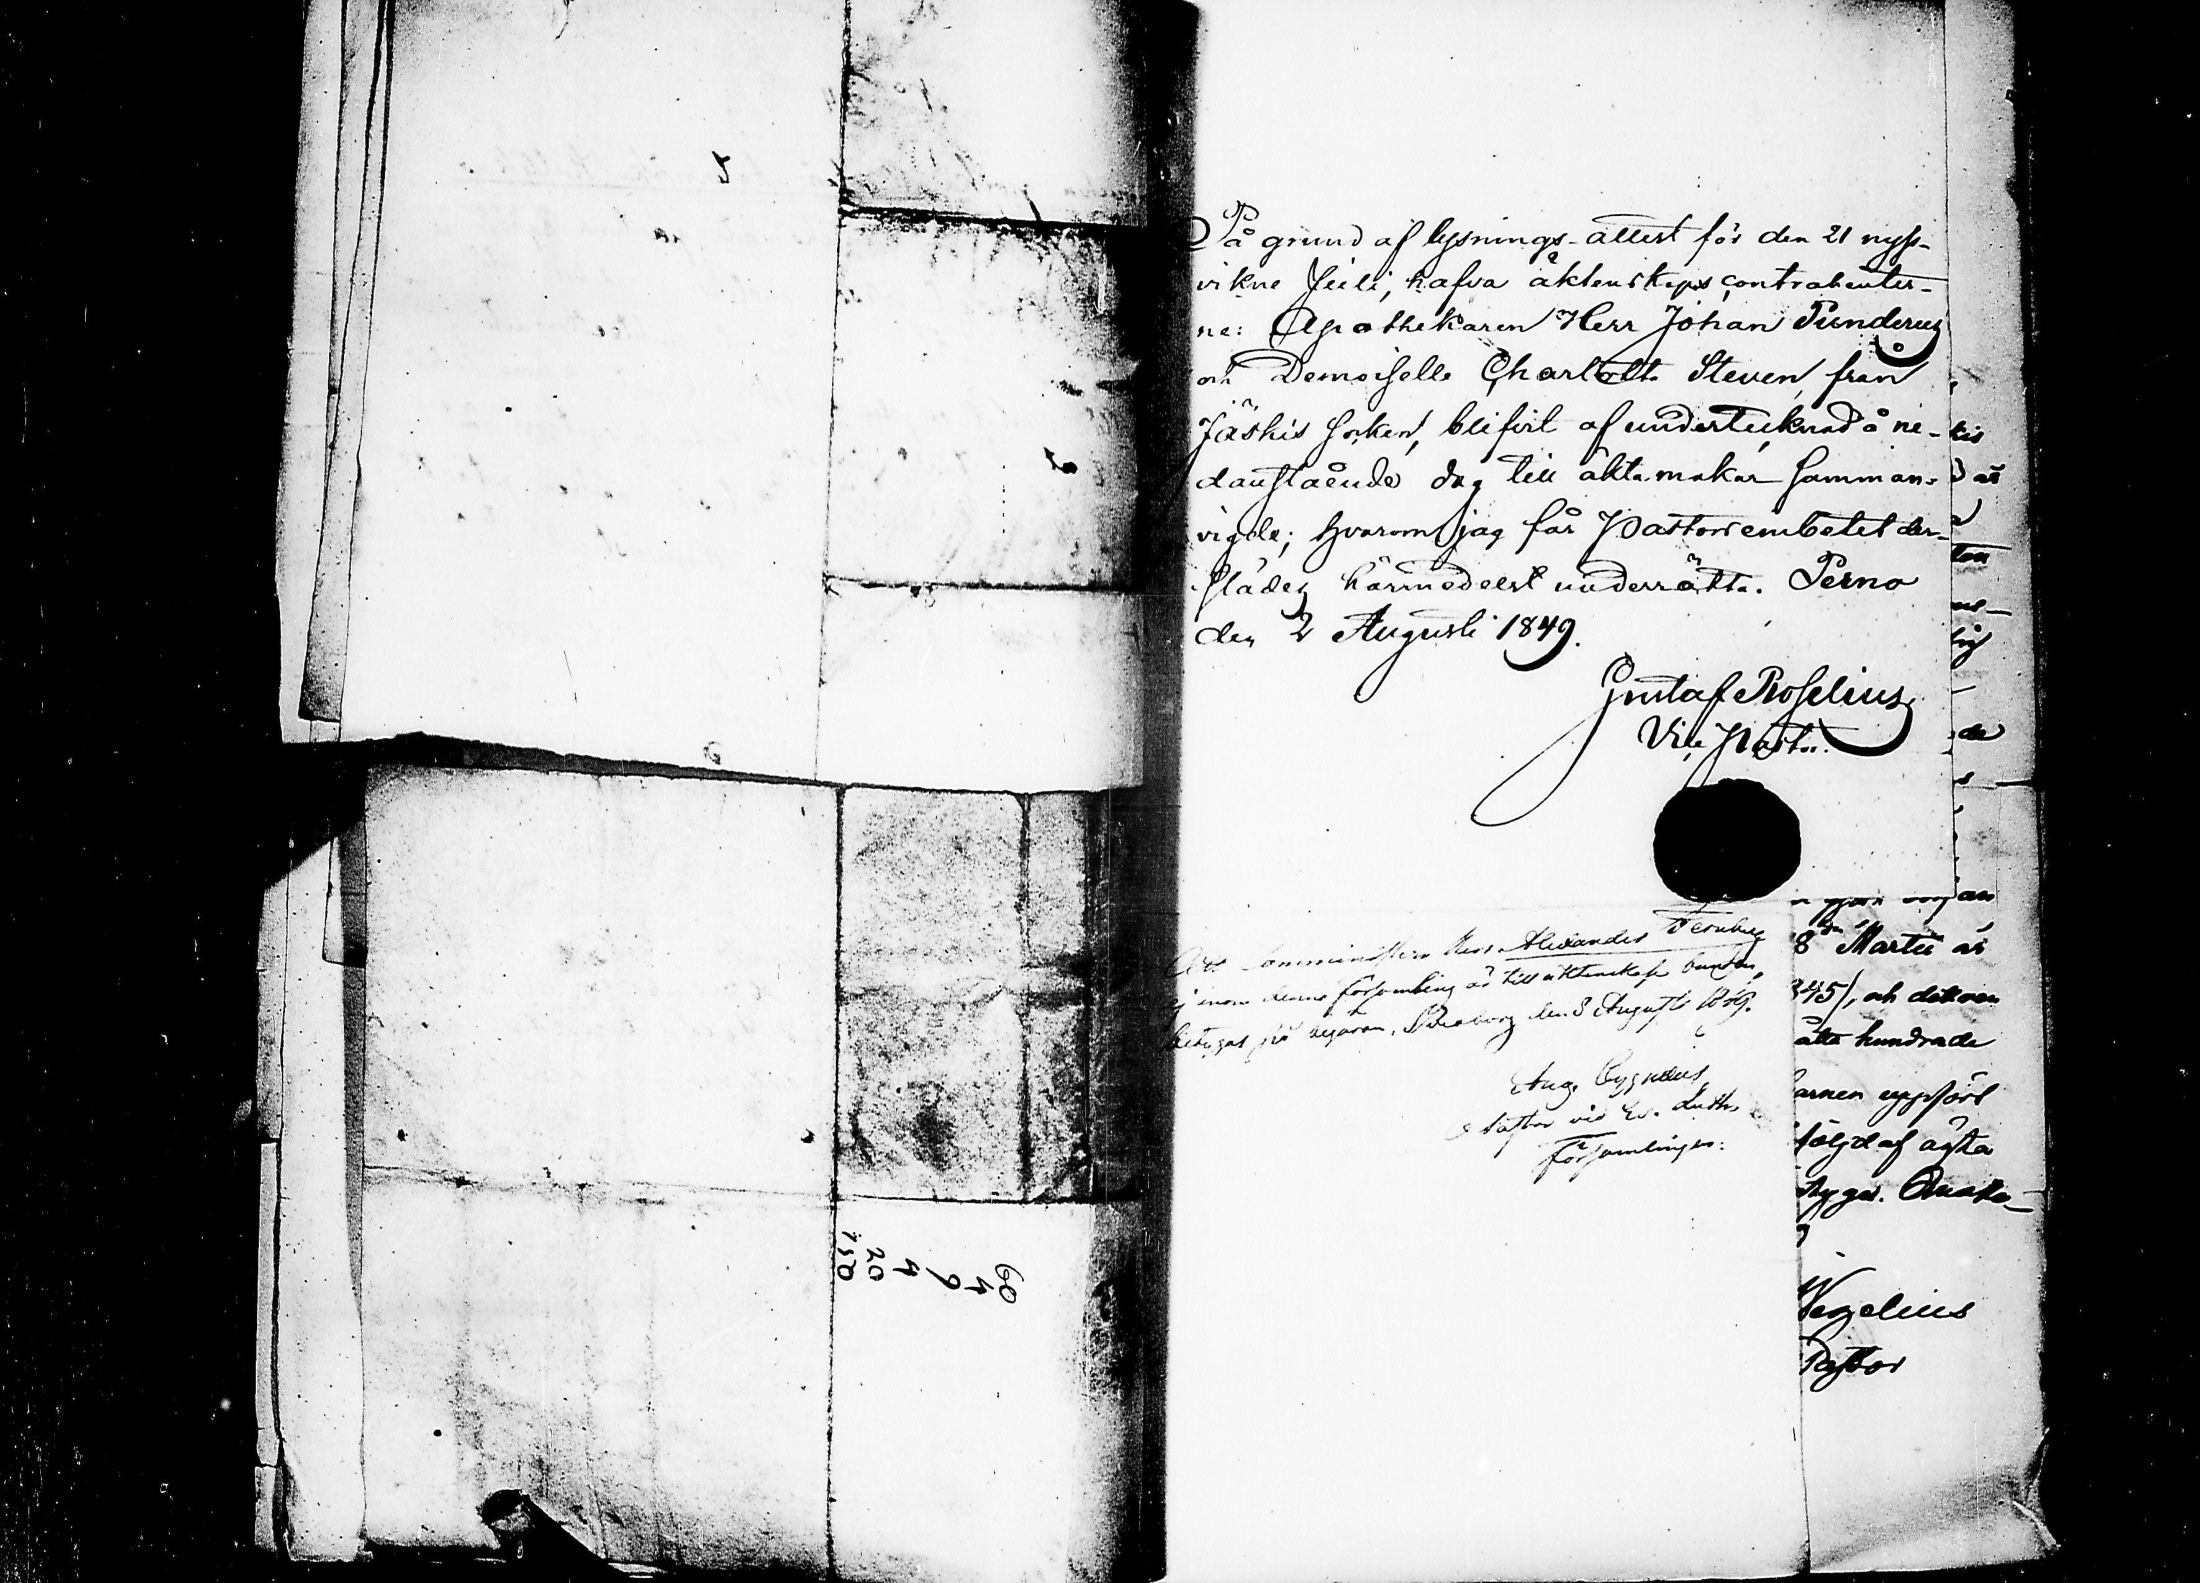 På grund af lysnings-attest för den 21 nyss-
vikne Juli, hafva äktenskaps contrahenter-
ne: Apothekaren Herr Johan Punderus
och Demoiselle Charlotta Steven från
Jäskis socken, blifvit af undertecknad å ne-
danstående dag till äkta makar samman-
vigde; hvarom jag får Pastorsembetet der-
städes härmedelst underrätta. Perno
den 2 Augusti 1849.
Gustaf Roselius,
Vice Pastor.
Att Comministern Herr Alexander Fernberg
ej inom denna församling är till äktenskap bunden,
betygas på begäran, Sveaborg den 8 Augusti 1849.
Aug. Cygnæus
Pastor vid Ev. Luth.
Församlingen.
kis
8 den Martii år
845/, och det
åtta hundrade
arnen uppfört
följd af
Wegelius
Pastor
60
4
9
4
20
150